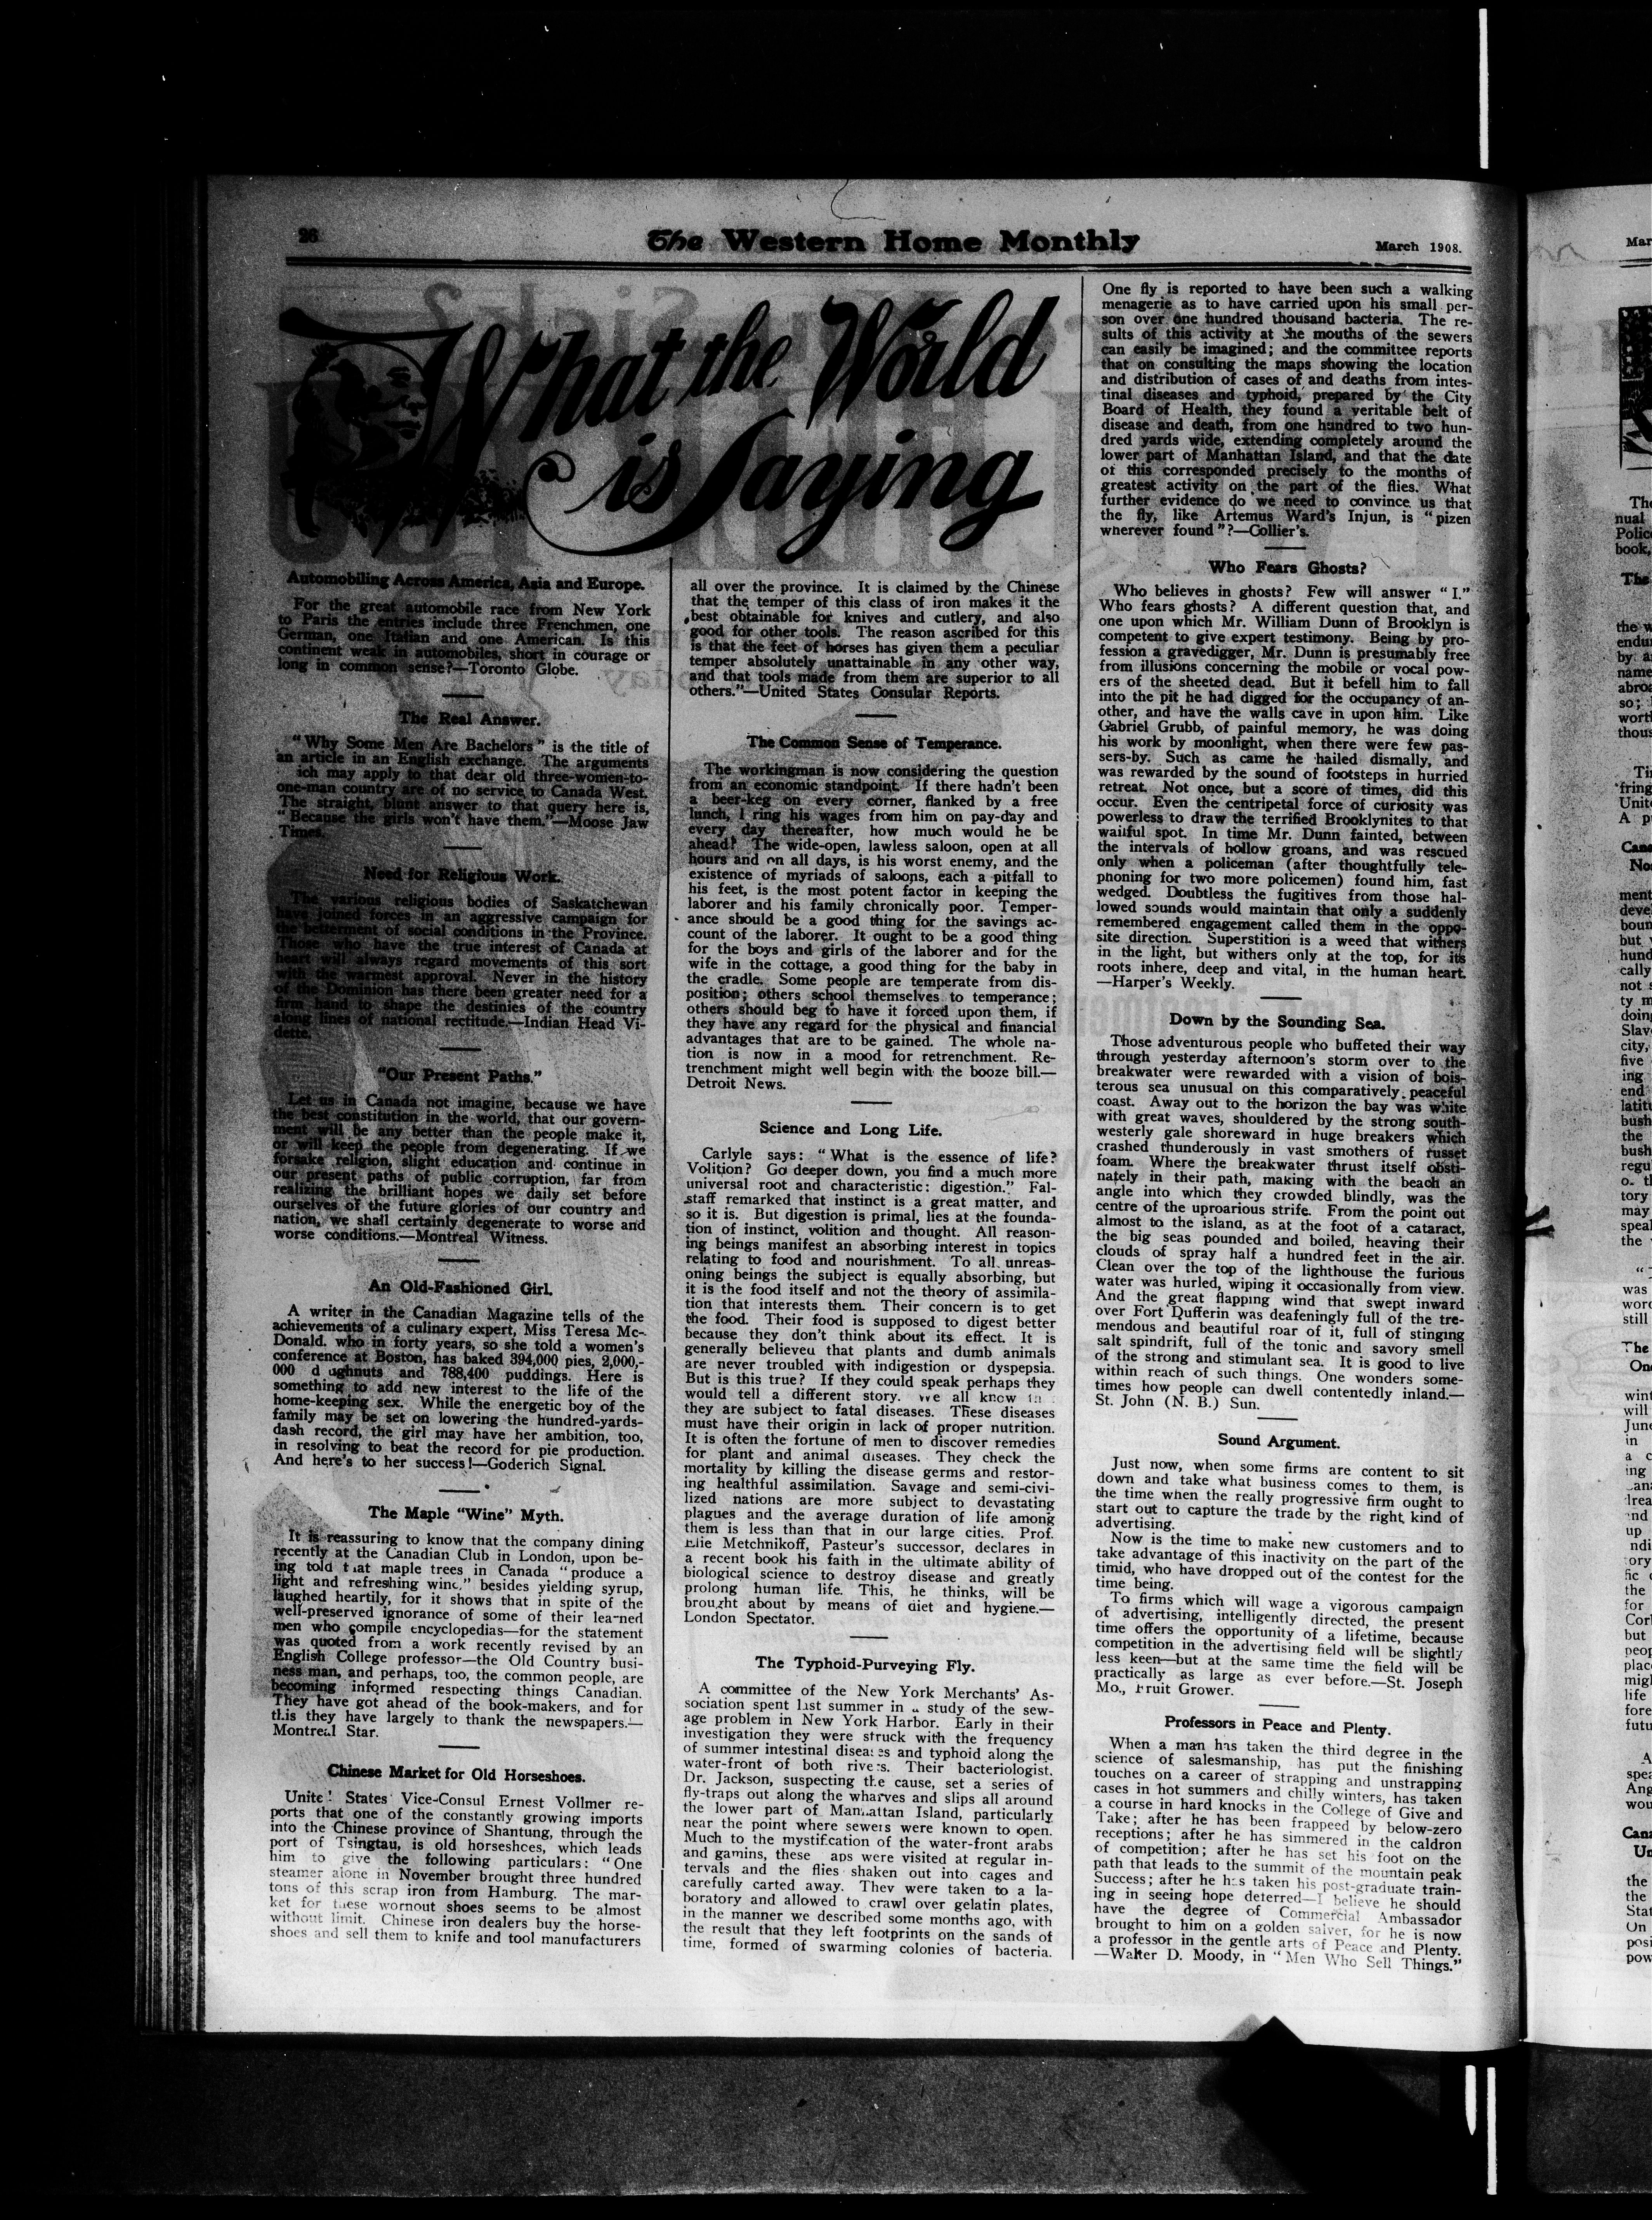 26
The Western Home Monthly
March 1908.
What the World
is Saying
Automobiling Across America, Asia and Europe.
For the great automobile race from New York
to Paris the entries include three Frenchmen, one
German, one Italian and one American. Is this
continent weak in automobiles, short in courage or
long in common sense?—Toronto Globe.
The Real Answer.
"Why Some Men Are Bachelors" is the title of
an article in an English exchange. The arguments
ich may apply to that dear old three-women-to-
one-man country are of no service to Canada West.
The straight, blunt answer to that query here is,
"Because the girls won't have them."—Moose Jaw
Times.
Need for Religious Work.
The various religious bodies of Saskatchewan
have joined forces in an aggressive campaign for
the betterment of social conditions in the Province.
Those who have the true interest of Canada at
heart will always regard movements of this sort
with the warmest approval. Never in the history
of the Dominion has there been greater need for a
firm hand to shape the destinies of the country
along lines of national rectitude.—Indian Head Vi-
dette.
"Our Present Paths."
Let us in Canada not imagine, because we have
the best constitution in the world, that our govern-
ment will be any better than the people make it,
or will keep the people from degenerating. If we
forsake religion, slight education and continue in
our present paths of public corruption, far from
realizing the brilliant hopes we daily set before
ourselves of the future glories of our country and
nation, we shall certainly degenerate to worse and
worse conditions.—Montreal Witness.
An Old-Fashioned Girl.
A writer in the Canadian Magazine tells of the
achievements of a culinary expert, Miss Teresa Mc-
Donald, who in forty years, so she told a women's
conference at Boston, has baked 394,000 pies, 2,000,-
000 d ughnuts and 788,400 puddings. Here is
something to add new interest to the life of the
home-keeping sex. While the energetic boy of the
family may be set on lowering the hundred-yards-
dash record, the girl may have her ambition, too,
in resolving to beat the record for pie production.
And here's to her success!—Goderich Signal.
The Maple "Wine" Myth.
It is reassuring to know that the company dining
recently at the Canadian Club in London, upon be-
ing told that maple trees in Canada "produce a
light and refreshing wine," besides yielding syrup,
laughed heartily, for it shows that in spite of the
well-preserved ignorance of some of their learned
men who compile encyclopedias—for the statement
was quoted from a work recently revised by an
English College professor—the Old Country busi-
ness man, and perhaps, too, the common people, are
becoming informed respecting things Canadian.
They have got ahead of the book-makers, and for
this they have largely to thank the newspapers.—
Montreal Star.
Chinese Market for Old Horseshoes.
Unite! States Vice-Consul Ernest Vollmer re-
ports that one of the constantly growing imports
into the Chinese province of Shantung, through the
port of Tsingtau, is old horseshoes, which leads
him to give the following particulars: "One
steamer alone in November brought three hundred
tons of this scrap iron from Hamburg. The mar-
ket for these wornout shoes seems to be almost
without limit. Chinese iron dealers buy the horse-
shoes and sell them to knife and tool manufacturers
all over the province. It is claimed by the Chinese
that the temper of this class of iron makes it the
best obtainable for knives and cutlery, and also
good for other tools. The reason ascribed for this
is that the feet of horses has given them a peculiar
temper absolutely unattainable in any other way,
and that tools made from them are superior to all
others."—United States Consular Reports.
The Common Sense of Temperance.
The workingman is now considering the question
from an economic standpoint. If there hadn't been
a beer-keg on every corner, flanked by a free
lunch, l ring his wages from him on pay-day and
every day thereafter, how much would he be
ahead? The wide-open, lawless saloon, open at all
hours and on all days, is his worst enemy, and the
existence of myriads of saloons, each a pitfall to
his feet, is the most potent factor in keeping the
laborer and his family chronically poor. Temper-
ance should be a good thing for the savings ac-
count of the laborer. It ought to be a good thing
for the boys and girls of the laborer and for the
wife in the cottage, a good thing for the baby in
the cradle. Some people are temperate from dis-
position; others school themselves to temperance;
others should beg to have it forced upon them, if
they have any regard for the physical and financial
advantages that are to be gained. The whole na-
tion is now in a mood for retrenchment. Re-
trenchment might well begin with the booze bill.—
Detroit News.
Science and Long Life.
Carlyle says: "What is the essence of life?
Volition? Go deeper down, you find a much more
universal root and characteristic: digestion." Fal-
staff remarked that instinct is a great matter, and
so it is. But digestion is primal, lies at the founda-
tion of instinct, volition and thought. All reason-
ing beings manifest an absorbing interest in topics
relating to food and nourishment. To all unreas-
oning beings the subject is equally absorbing, but
it is the food itself and not the theory of assimila-
tion that interests them. Their concern is to get
the food. Their food is supposed to digest better
because they don't think about its effect. It is
generally believeu that plants and dumb animals
are never troubled with indigestion or dyspepsia.
But is this true? If they could speak perhaps they
would tell a different story. We all know
they are subject to fatal diseases. These diseases
must have their origin in lack of proper nutrition.
It is often the fortune of men to discover remedies
for plant and animal diseases. They check the
mortality by killing the disease germs and restor-
ing healthful assimilation. Savage and semi-civi-
lized nations are more subject to devastating
plagues and the average duration of life among
them is less than that in our large cities. Prof.
Elie Metchnikoff, Pasteur's successor, declares in
a recent book his faith in the ultimate ability of
biological science to destroy disease and greatly
prolong human life. This, he thinks, will be
brought about by means of diet and hygiene.—
London Spectator.
The Typhoid-Purveying Fly.
A committee of the New York Merchants' As-
sociation spent last summer in a study of the sew-
age problem in New York Harbor. Early in their
investigation they were struck with the frequency
of summer intestinal diseases and typhoid along the
water-front of both rivers. Their bacteriologist,
Dr. Jackson, suspecting the cause, set a series of
fly-traps out along the wharves and slips all around
the lower part of Manhattan Island, particularly
near the point where sewers were known to open.
Much to the mystification of the water-front arabs
and gamins, these aps were visited at regular in-
tervals and the flies shaken out into cages and
carefully carted away. They were taken to a la-
boratory and allowed to crawl over gelatin plates,
in the manner we described some months ago, with
the result that they left footprints on the sands of
time, formed of swarming colonies of bacteria.
One fly is reported to have been such a walking
menagerie as to have carried upon his small per-
son over one hundred thousand bacteria. The re-
sults of this activity at the mouths of the sewers
can easily be imagined; and the committee reports
that on consulting the maps showing the location
and distribution of cases of and deaths from intes-
tinal diseases and typhoid, prepared by the City
Board of Health, they found a veritable belt of
disease and death, from one hundred to two hun-
dred yards wide, extending completely around the
lower part of Manhattan Island, and that the date
of this corresponded precisely to the months of
greatest activity on the part of the flies. What
further evidence do we need to convince us that
the fly, like Artemus Ward's Injun, is "pizen
wherever found"?—Collier's.
Who Fears Ghosts?
Who believes in ghosts? Few will answer "I."
Who fears ghosts? A different question that, and
one upon which Mr. William Dunn of Brooklyn is
competent to give expert testimony. Being by pro-
fession a gravedigger, Mr. Dunn is presumably free
from illusions concerning the mobile or vocal pow-
ers of the sheeted dead. But it befell him to fall
into the pit he had digged for the occupancy of an-
other, and have the walls cave in upon him. Like
Gabriel Grubb, of painful memory, he was doing
his work by moonlight, when there were few pas-
sers-by. Such as came he hailed dismally, and
was rewarded by the sound of footsteps in hurried
retreat. Not once, but a score of times, did this
occur. Even the centripetal force of curiosity was
powerless to draw the terrified Brooklynites to that
wailful spot. In time Mr. Dunn fainted, between
the intervals of hollow groans, and was rescued
only when a policeman (after thoughtfully tele-
phoning for two more policemen) found him, fast
wedged. Doubtless the fugitives from those hal-
lowed sounds would maintain that only a suddenly
remembered engagement called them in the oppo-
site direction. Superstition is a weed that withers
in the light, but withers only at the top, for its
roots inhere, deep and vital, in the human heart.
—Harper's Weekly.
Down by the Sounding Sea.
Those adventurous people who buffeted their way
through yesterday afternoon's storm over to the
breakwater were rewarded with a vision of bois-
terous sea unusual on this comparatively peaceful
coast. Away out to the horizon the bay was white
with great waves, shouldered by the strong south-
westerly gale shoreward in huge breakers which
crashed thunderously in vast smothers of russet
foam. Where the breakwater thrust itself obsti-
nately in their path, making with the beach an
angle into which they crowded blindly, was the
centre of the uproarious strife. From the point out
almost to the island, as at the foot of a cataract,
the big seas pounded and boiled, heaving their
clouds of spray half a hundred feet in the air.
Clean over the top of the lighthouse the furious
water was hurled, wiping it occasionally from view.
And the great flapping wind that swept inward
over Fort Dufferin was deafeningly full of the tre-
mendous and beautiful roar of it, full of stinging
salt spindrift, full of the tonic and savory smell
of the strong and stimulant sea. It is good to live
within reach of such things. One wonders some-
times how people can dwell contentedly inland.—
St. John (N. B.) Sun.
Sound Argument.
Just now, when some firms are content to sit
down and take what business comes to them, is
the time when the really progressive firm ought to
start out to capture the trade by the right kind of
advertising.
Now is the time to make new customers and to
take advantage of this inactivity on the part of the
timid, who have dropped out of the contest for the
time being.
To firms which will wage a vigorous campaign
of advertising, intelligently directed, the present
time offers the opportunity of a lifetime, because
competition in the advertising field will be slightly
less keen—but at the same time the field will be
practically as large as ever before.—St. Joseph
Mo., Fruit Grower.
Professors in Peace and Plenty.
When a man has taken the third degree in the
science of salesmanship, has put the finishing
touches on a career of strapping and unstrapping
cases in hot summers and chilly winters, has taken
a course in hard knocks in the College of Give and
Take; after he has been frappeed by below-zero
receptions; after he has simmered in the caldron
of competition; after he has set his foot on the
path that leads to the summit of the mountain peak
Success; after he has taken his post-graduate train-
ing in seeing hope deterred—I believe he should
have the degree of Commercial Ambassador
brought to him on a golden salver, for he is now
a professor in the gentle arts of Peace and Plenty.
—Walter D. Moody, in "Men Who Sell Things."